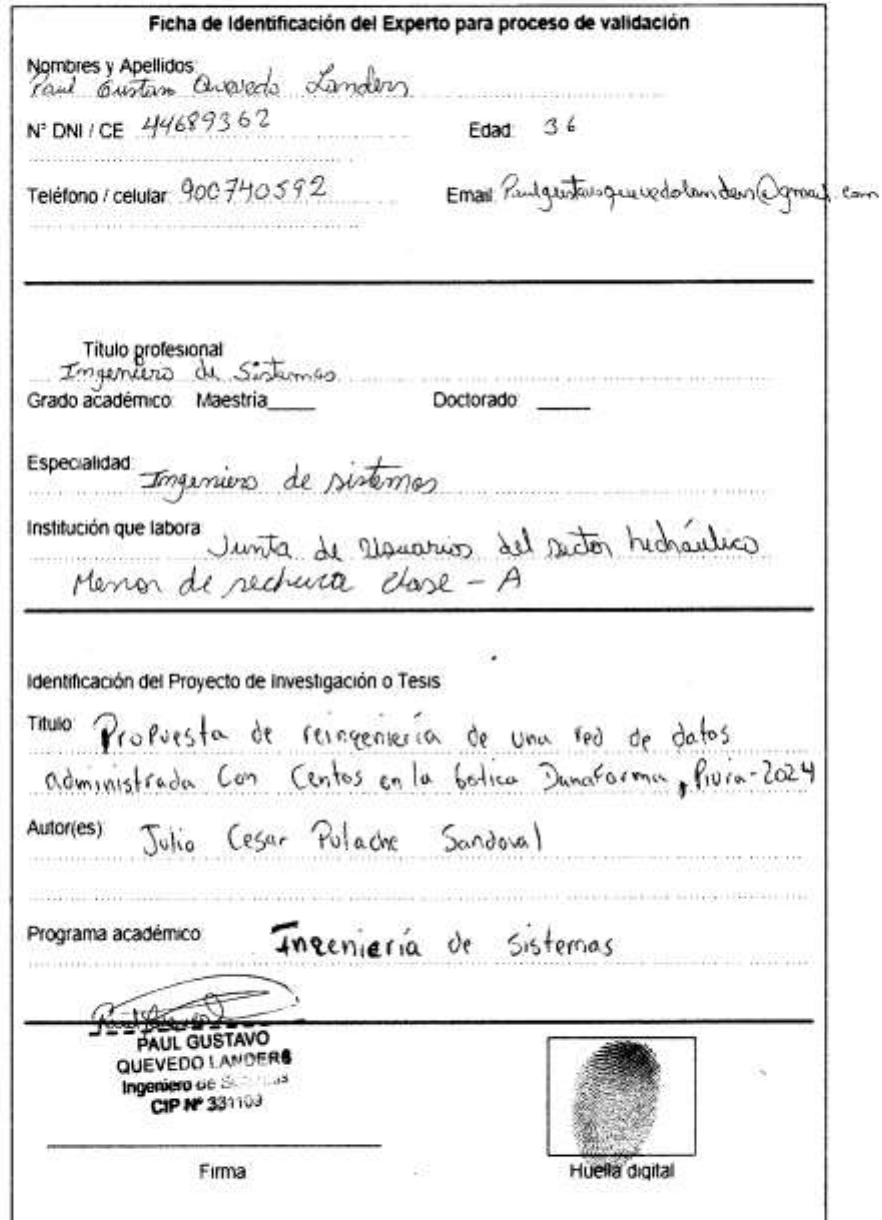 Ficha de Identificación del Experto para proceso de validación
Nombres y Apellidos:
Paul Gustavo Quevedo Landers
N° DNI / CE 44689362 Edad: 36
Teléfono / celular: 900740592 Email: Paulgustavoquevedolanders@gmail.com
Título profesional
Ingeniero de Sistemas
Grado académico: Maestría____ Doctorado: ____
Especialidad:
Ingeniero de sistemas
Institución que labora:
Junta de Usuarios del sector hidráulico
Menor de sechura clase - A
Identificación del Proyecto de Investigación o Tesis
Titulo: Propuesta de reingeniería de una red de datos
administrada Con Centos en la botica Dunafarma, Piura-2024
Autor(es): Julio Cesar Pulache Sandoval
Programa académico: Ingeniería de Sistemas
PAUL GUSTAVO
QUEVEDO LANDERS
Ingeniero de Sistemas
CIP N° 331103
Firma Huella digital